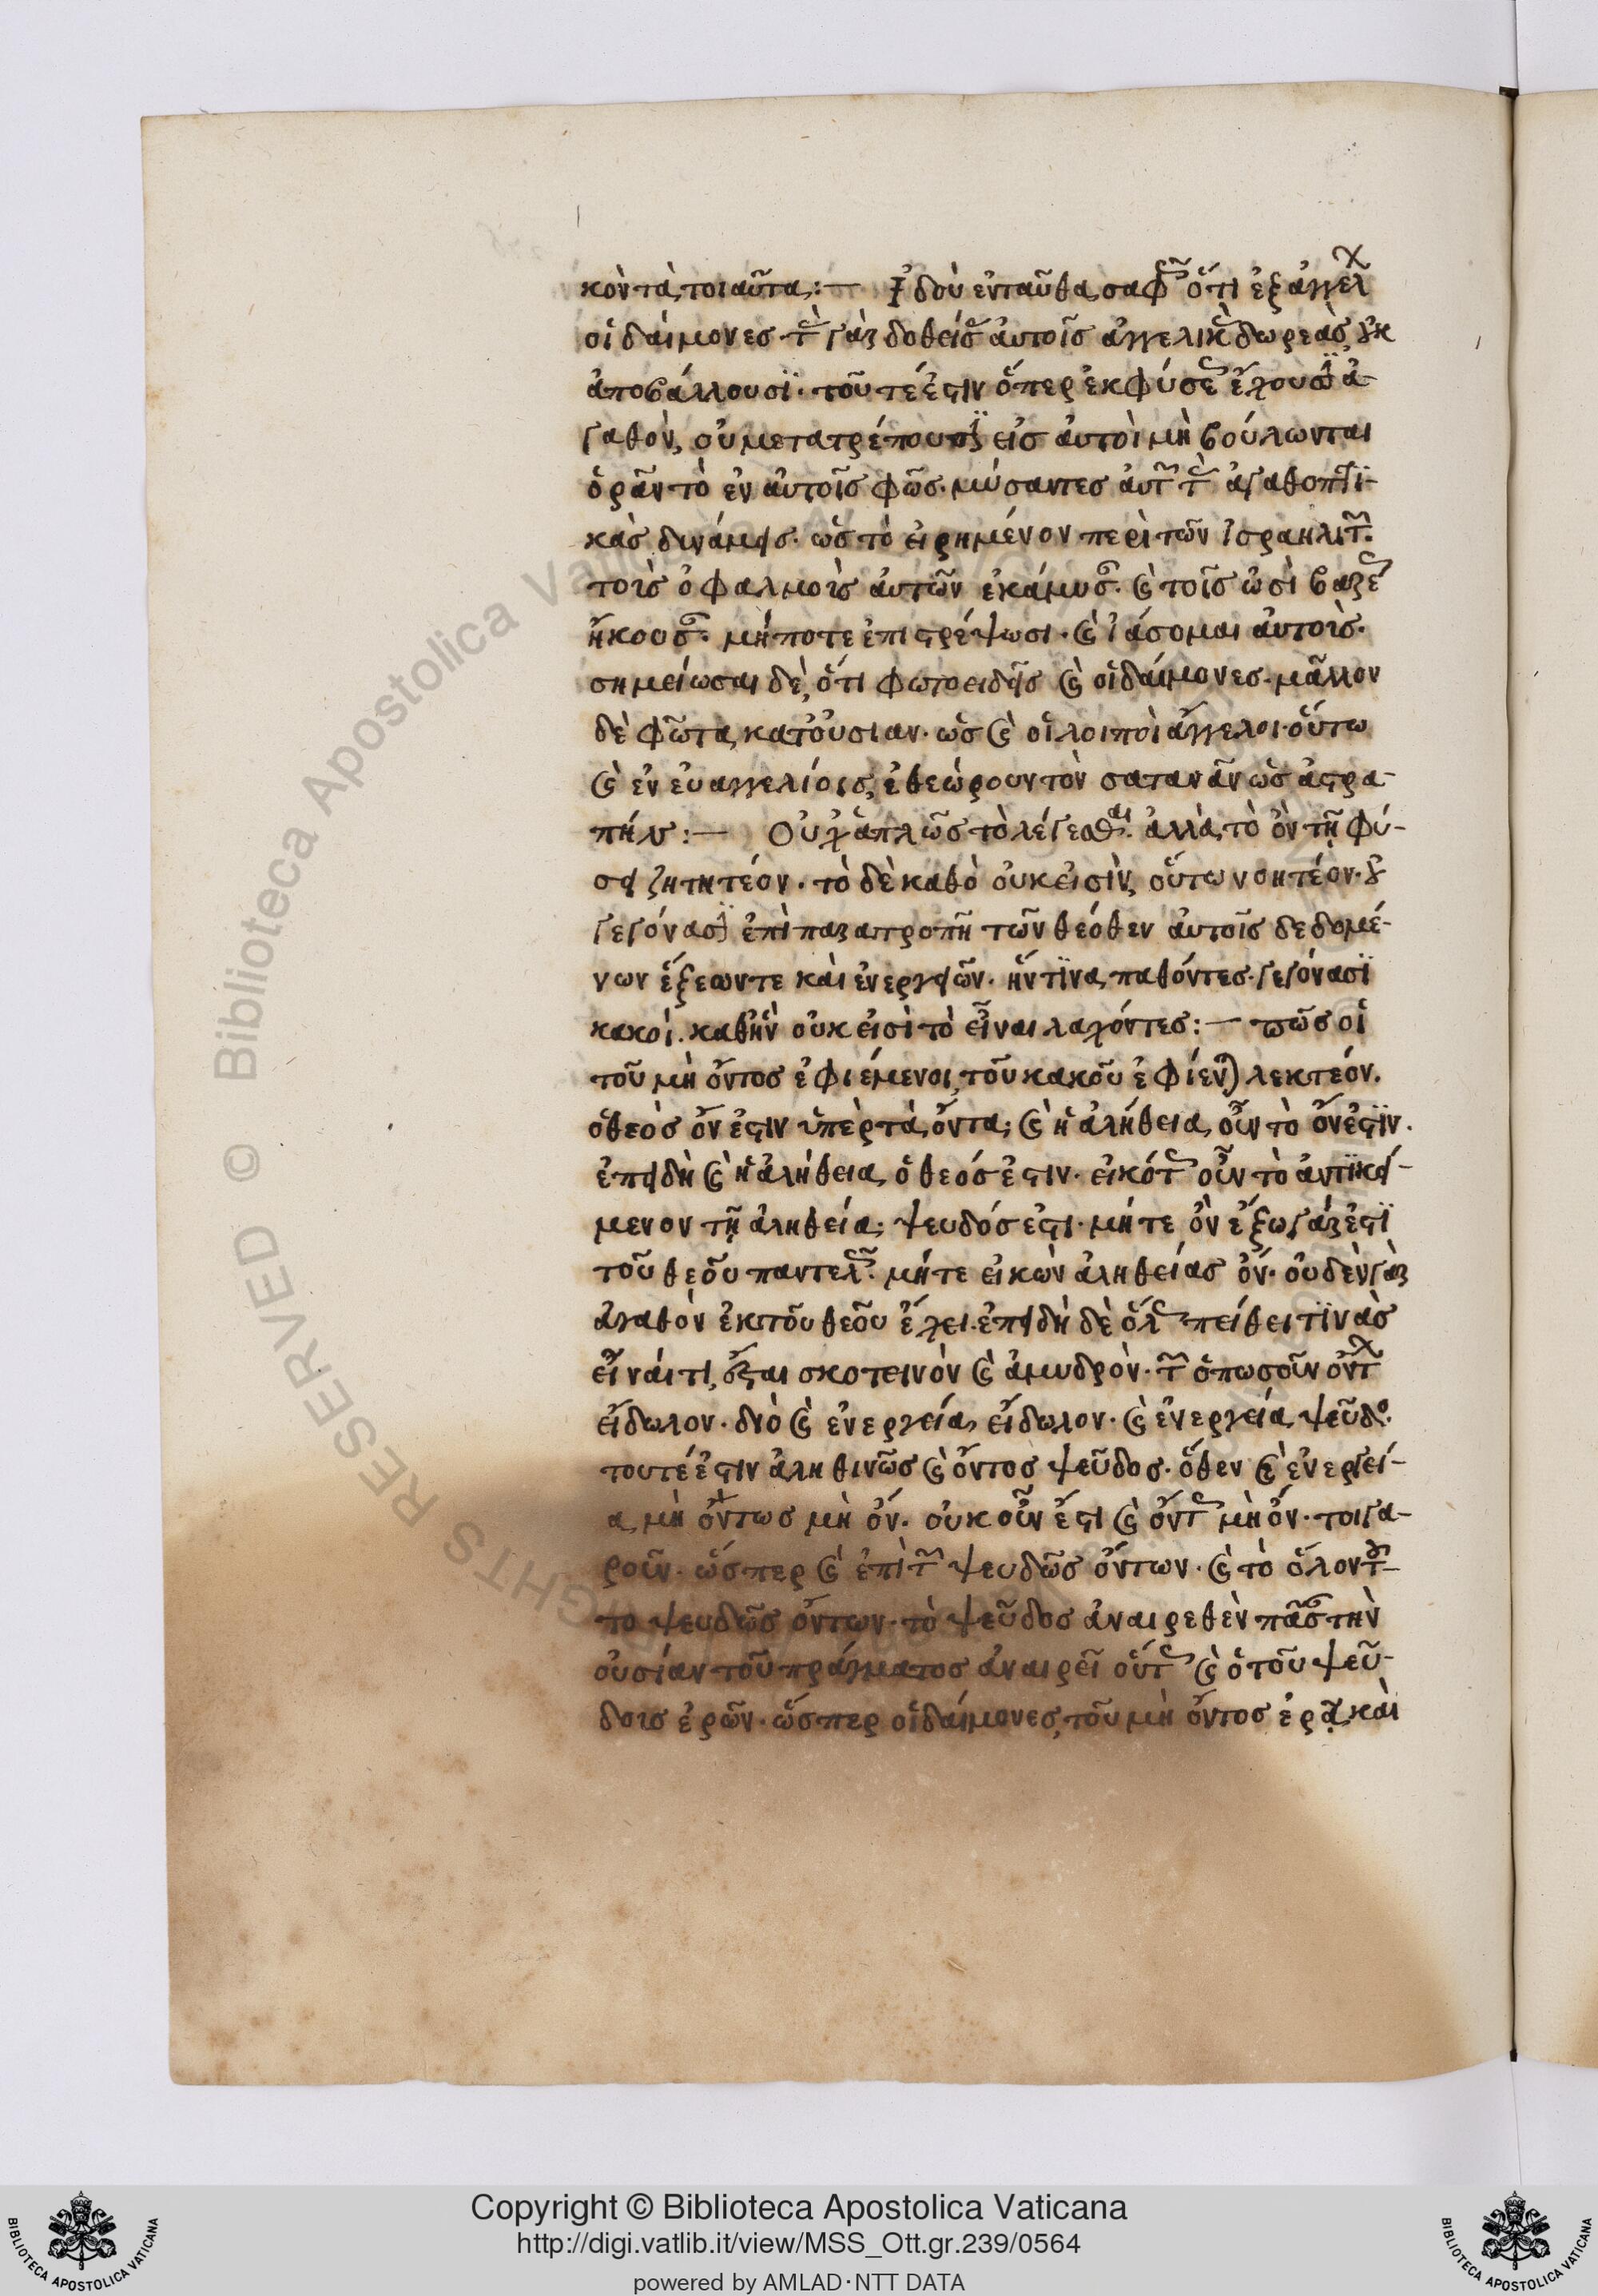 κὸν τὰ τοιαῦτα:— Ἰδοὺ ἐνταῦθα σαφῶς ὅτι ἐξ ἀγγέλων
οἱ δαίμονες· τὰς γὰρ δοθείσας αὐτοῖς ἀγγελικὰς δωρεὰς οὐκ
ἀποβάλλουσϊ· τοῦτέ ἐστιν ὅπερ ἐκ φύσεως ἔχουσϊν ἀ-
γαθὸν, οὐ μετατρέπουσϊ εἰσ αὐτοὶ μὴ βούλωνται
ὁρᾶν τὸ ἐν αὐτοῖς φῶς· μύσαντες αὐτῶν τὰς ἀγαθοπτϊ-
κὰς δυνάμεις· ὡς τὸ εἰρημένον περὶ τῶν Ἰσραηλιτῶν·
τοὺς ὀφαλμοὺς αὐτῶν ἐκάμυσαν· καὶ τοῖς ὠσὶ βαρέως
ἤκουσαν· μήποτε ἐπιστρέψωσι· καὶ ἰάσομαι αὐτοὺς·
σημείωσαι δὲ, ὅτι φωτοειδεῖς καὶ οἱ δαίμονες· μᾶλλον
δὲ φῶτα κατ' οὐσίαν· ὡς καὶ οἱ λοιποὶ ἄγγελοι· οὕτω
καὶ ἐν εὐαγγελίοις, ἐθεώρουν τὸν σατανᾶν ὡς ἀστρα-
πήν:— Οὐχ ἁπλῶς τὸ λέγεσθαι· ἀλλὰ τὸ ὂν τῇ φύ-
σει ζητητέον· τὸ δὲ καθὸ οὐκ εἰσὶν, οὕτω νοητέον· οὐ
γεγόνασϊ ἐπὶ παρατροπῇ τῶν θεόθεν αὐτοῖς δεδομέ-
νων ἕξεων τε καὶ ἐνεργειῶν· ἥν τϊνα παθόντες· γεγόνασϊ
κακοὶ. καθ' ἣν οὐκ εἰσὶ τὸ εἶναι λαχόντες:— πῶς οἱ
τοῦ μὴ ὄντος ἐφιέμενοι, τοῦ κακοῦ ἐφίενται λεκτέον.
ὁ θεὸς ὄν ἐστιν ὑπὲρ τὰ ὄντα; καὶ ἡ ἀλήθεια οὖν τὸ ὄν ἐστϊν.
ἐπειδὴ καὶ ἡ ἀλήθεια ὁ θεός ἐστιν· εἰκότως οὖν τὸ ἀντϊκεί-
μενον τῇ ἀληθεία; ψευδός ἐστι· μήτε ὂν ἔξω γάρ ἐστϊ
τοῦ θεοῦ παντελῶς· μήτε εἰκὼν ἀληθείας ὄν· οὐδὲν γὰρ
ἀγαθὸν ἐκ τοῦ θεοῦ ἔχει· ἐπειδὴ δὲ ὅλως πείθει τϊνὰς
εἶναί τι, ἔσται σκοτεινὸν καὶ ἀμυδρὸν· τῶν ὁπωσοῦν ὄντων
εἴδωλον· διὸ καὶ ἐνεργεία εἴδωλον· καὶ ἐνεργεία ψεῦδος·
τουτέ ἐστιν ἀληθινῶς καὶ ὄντος ψεῦδος· ὅθεν καὶ ἐνεργεί-
α μὴ ὄντως μὴ ὄν· οὐκ οὖν ἔστι καὶ ὄντως μὴ ὄν· τοιγα-
ροῦν· ὥσπερ καὶ ἐπὶ τῶν ψευδῶς ὄντων· καὶ τὸ ὅλον
το ψευδῶς ὄντων· τὸ ψεῦδος ἀναιρεθὲν πᾶσαν τὴν
οὐσίαν τοῦ πράγματος ἀναιρεῖ οὕτως καὶ ὁ τοῦ ψεύ-
δοις ἐρῶν· ὥσπερ οἱ δαίμονες, τοῦ μὴ ὄντος ἐρᾷ, καὶ
Copyright © Biblioteca Apostolica Vaticana
http://digi.vatlib.it/view/MSS_Ott.gr.239/0564
powered by AMLAD·NTT DATA